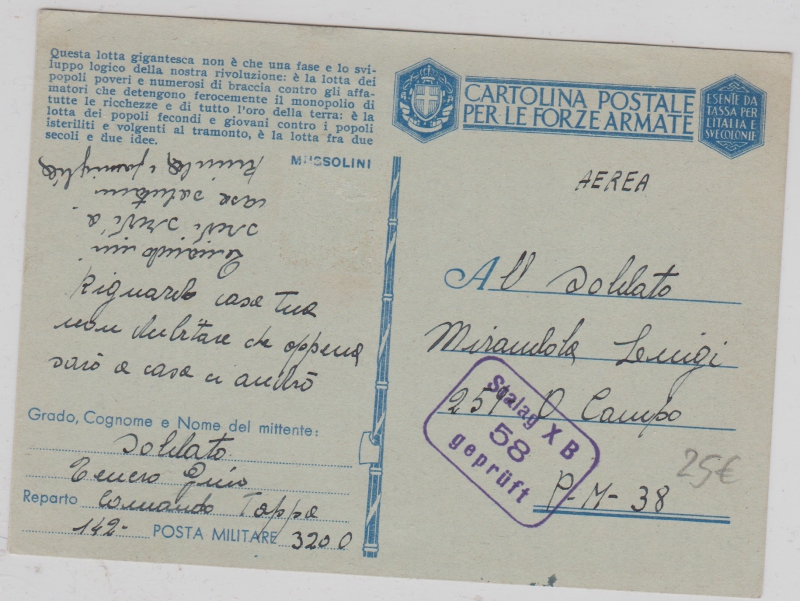 Questa lotta gigantesca non è che una fase e lo svi-
luppo logico della nostra rivoluzione: è la lotta dei
popoli poveri e numerosi di braccia contro gli affa-
matori che detengono ferocemente il monopolio di
tutte le ricchezze e di tutto l'oro della terra: è la
lotta dei popoli fecondi e giovani contro i popoli
isteriliti e volgenti al tramonto, è la lotta fra due
secoli e due idee.
MUSSOLINI
Quando mi
scrivi a
casa salutami
e famiglia
Riguardo casa tua
non dubitare che appena
sarò a casa ci andrò
Grado, Cognome e Nome del mittente:
Soldato
Reparto Comando Tappa
142- POSTA MILITARE 3200
CARTOLINA POSTALE
PER LE FORZE ARMATE
ESENTE DA
TASSA PER
L'ITALIA E
SVE COLONIE
AEREA
Al Soldato
Mirandola Luigi
251 O Campo
P-M-38
Stalag X B
58
geprüft
25€